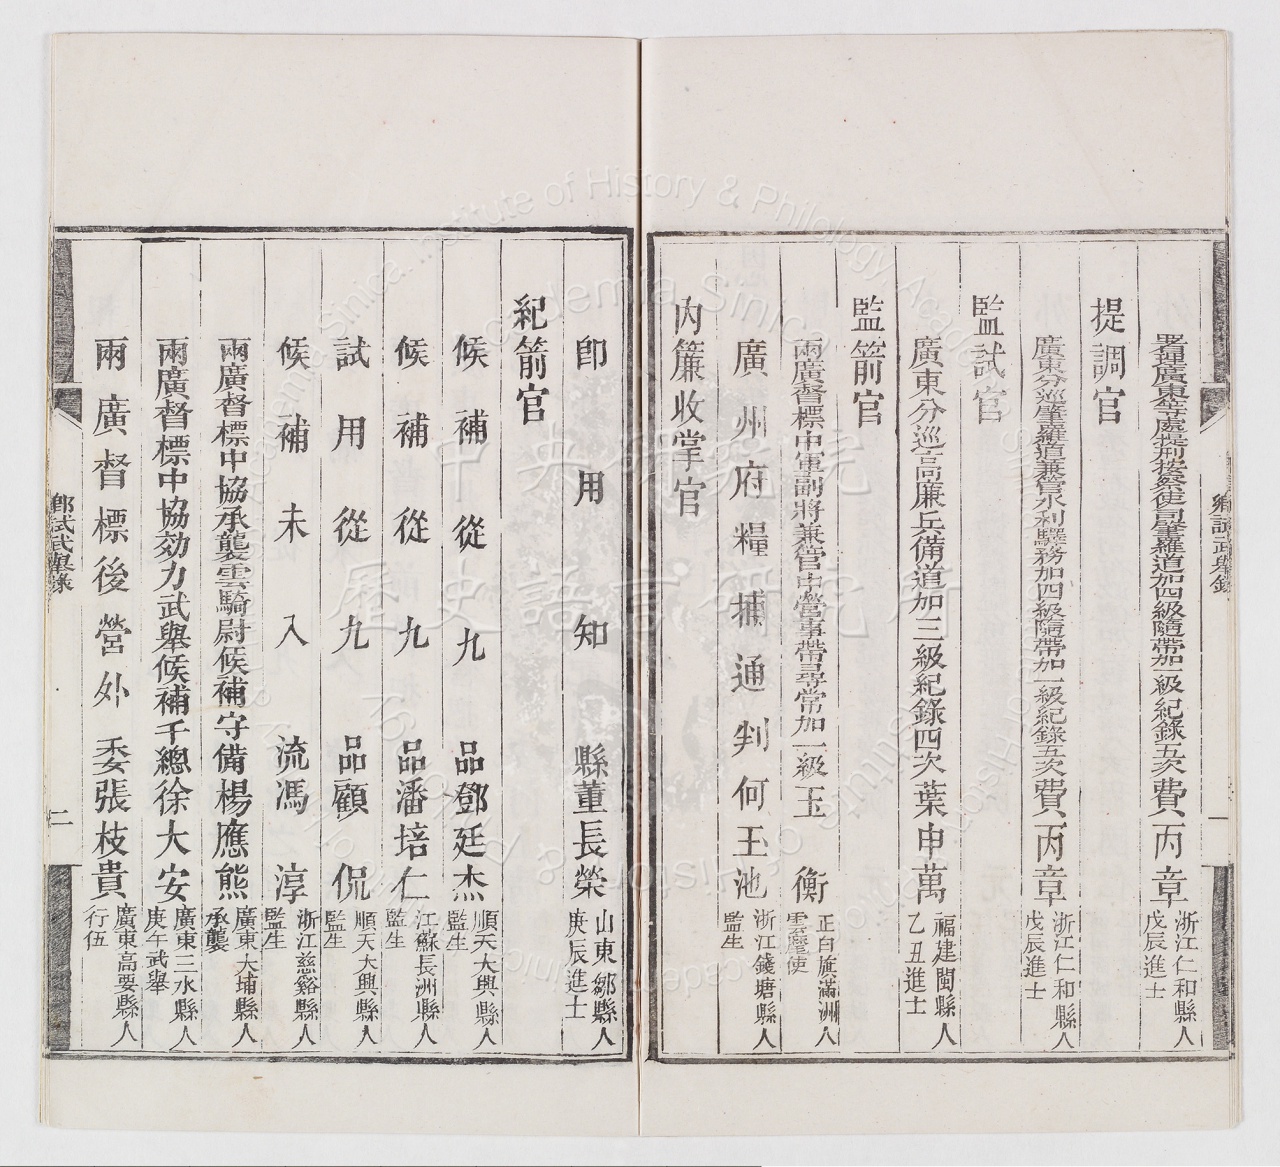 署理廣東等處提刑按察使司肇羅道加四級隨帶加一級紀錄五次費丙章 浙江仁和縣人 戊辰進士
提調官
廣東分巡肇羅道兼管水利驛務加四級隨帶加一級紀錄五次費丙章 浙江仁和縣人 戊辰進士
監試官
廣東分巡高廉兵備道加三級紀錄四次葉申萬 福建閩縣人 乙丑進士
監箭官
兩廣督標中軍副將兼管中營事帶尋常加一級玉衡 正白旗滿洲人 雲麾使
廣州府糧捕通判何玉池 浙江錢塘縣人 監生
內簾收掌官
鄉試武舉錄
一
卽用知縣董長榮 山東鄒縣人 庚辰進士
紀箭官
候補從九品鄧廷杰 順天大興縣人 監生
候補從九品潘培仁 江蘇長洲縣人 監生
試用從九品顧侃 順天大興縣人 監生
候補未入流馮淳 浙江慈谿縣人 監生
兩廣督標中協承襲雲騎尉候補守備楊應熊 廣東大埔縣人 承襲
兩廣督標中協効力武舉候補千總徐大安 廣東三水縣人 庚午武舉
兩廣督標後營外委張枝貴 廣東高要縣人 行伍
鄉試武舉錄
二
中央研究院
歷史語言研究所
Institute of History & Philology Academia Sinica